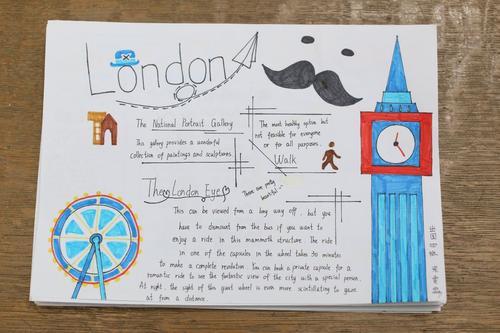 London
The National Portrait Gallery
This gallery provides a wonderful
collection of paintings and sculptures.
The most healthy option but
not feasible for everyone
or for all purposes.
Walk
The London Eye
These are pretty
beautiful~
This can be viewed from a long way off, but you
have to dismount from the bus if you want to
enjoy a ride in this mammoth structure. The ride
in one of the capsules in the wheel takes 30 minutes
to make a complete revolution. You can book a private capsule for a
romantic ride to see the fantastic view of the city with a special person.
At night, the sight of this giant wheel is even more scintillating to gaze
at from a distance.